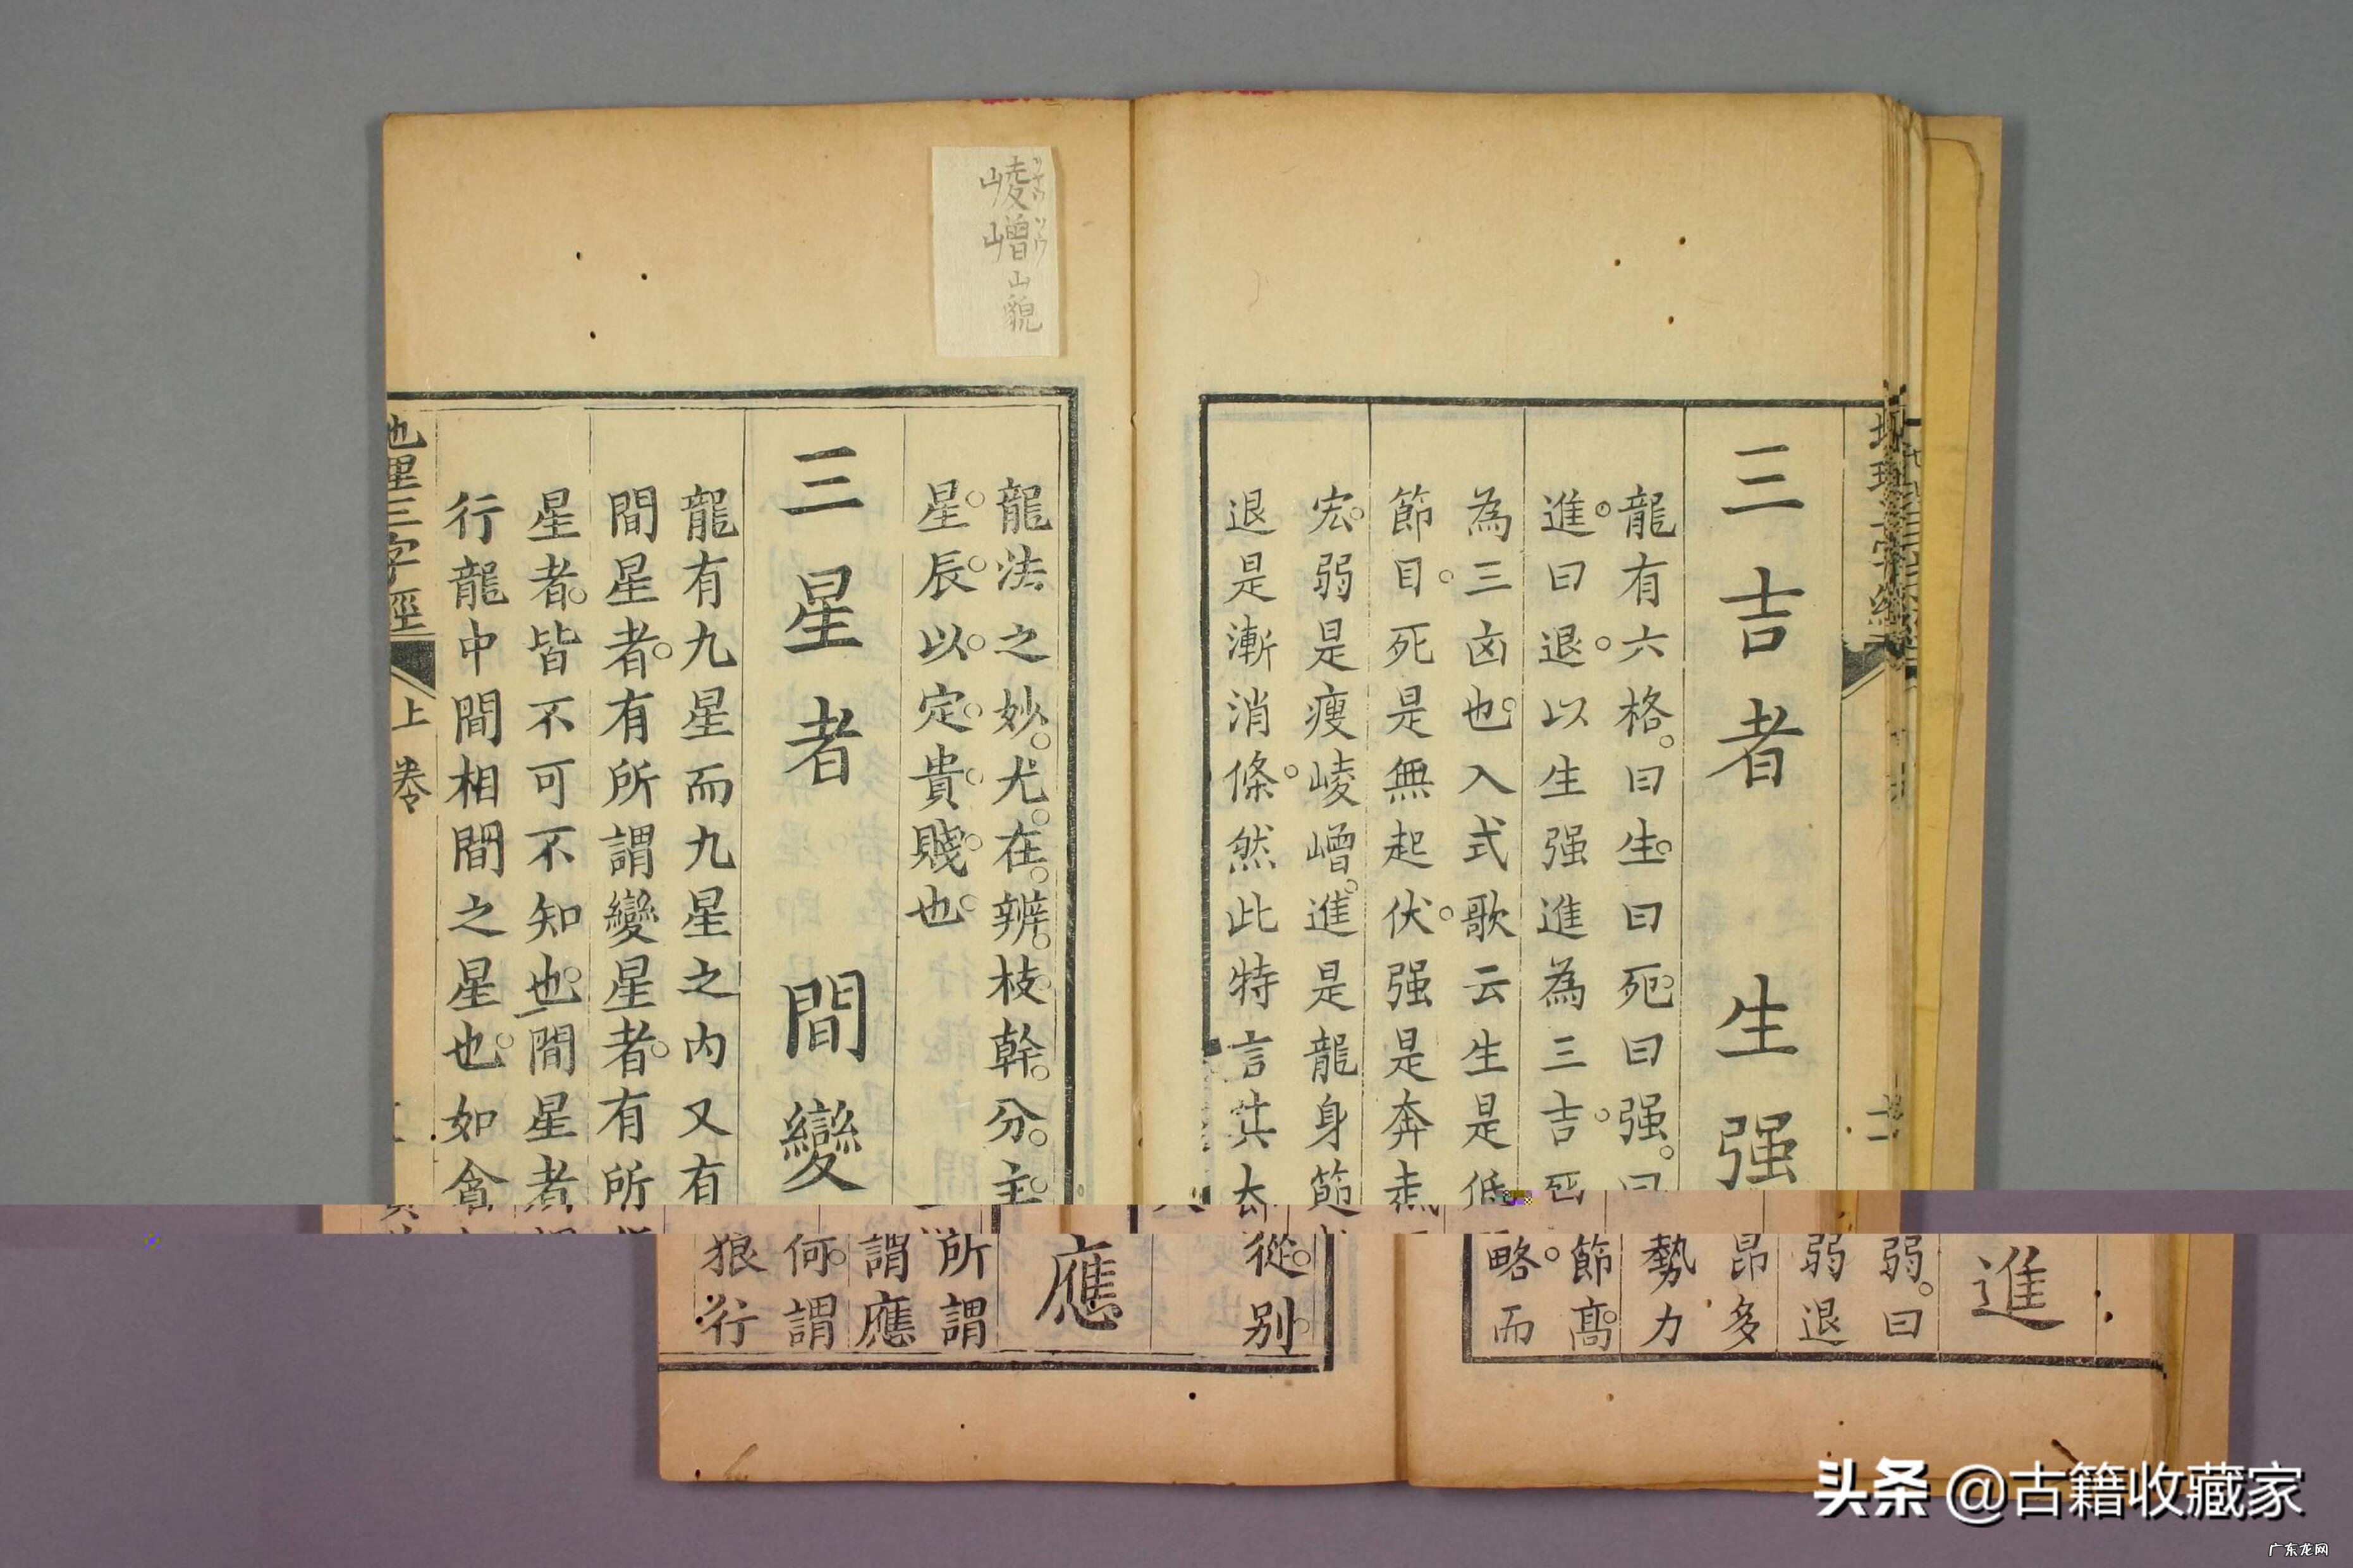 三吉者 生强進
龍有六格曰生曰死曰强曰弱曰
進曰退以生强進為三吉死弱退
為三凶也入式歌云生是低昂多
節目死是無起伏强是奔走勢力
宏弱是瘦崚嶒進是龍身節節高
退是漸消條然此特言其大略而
崚嶒山貌
龍法之妙尤在辨枝幹分主從别
星辰以定貴賤也
三星者 間變應
龍有九星而九星之内又有所謂
間星者有所謂變星者有所謂應
星者皆不可不知也間星者何謂
行龍中間相間之星也如貪狼行
地理三字經 上卷
头条 @古籍收藏家
广东龙网